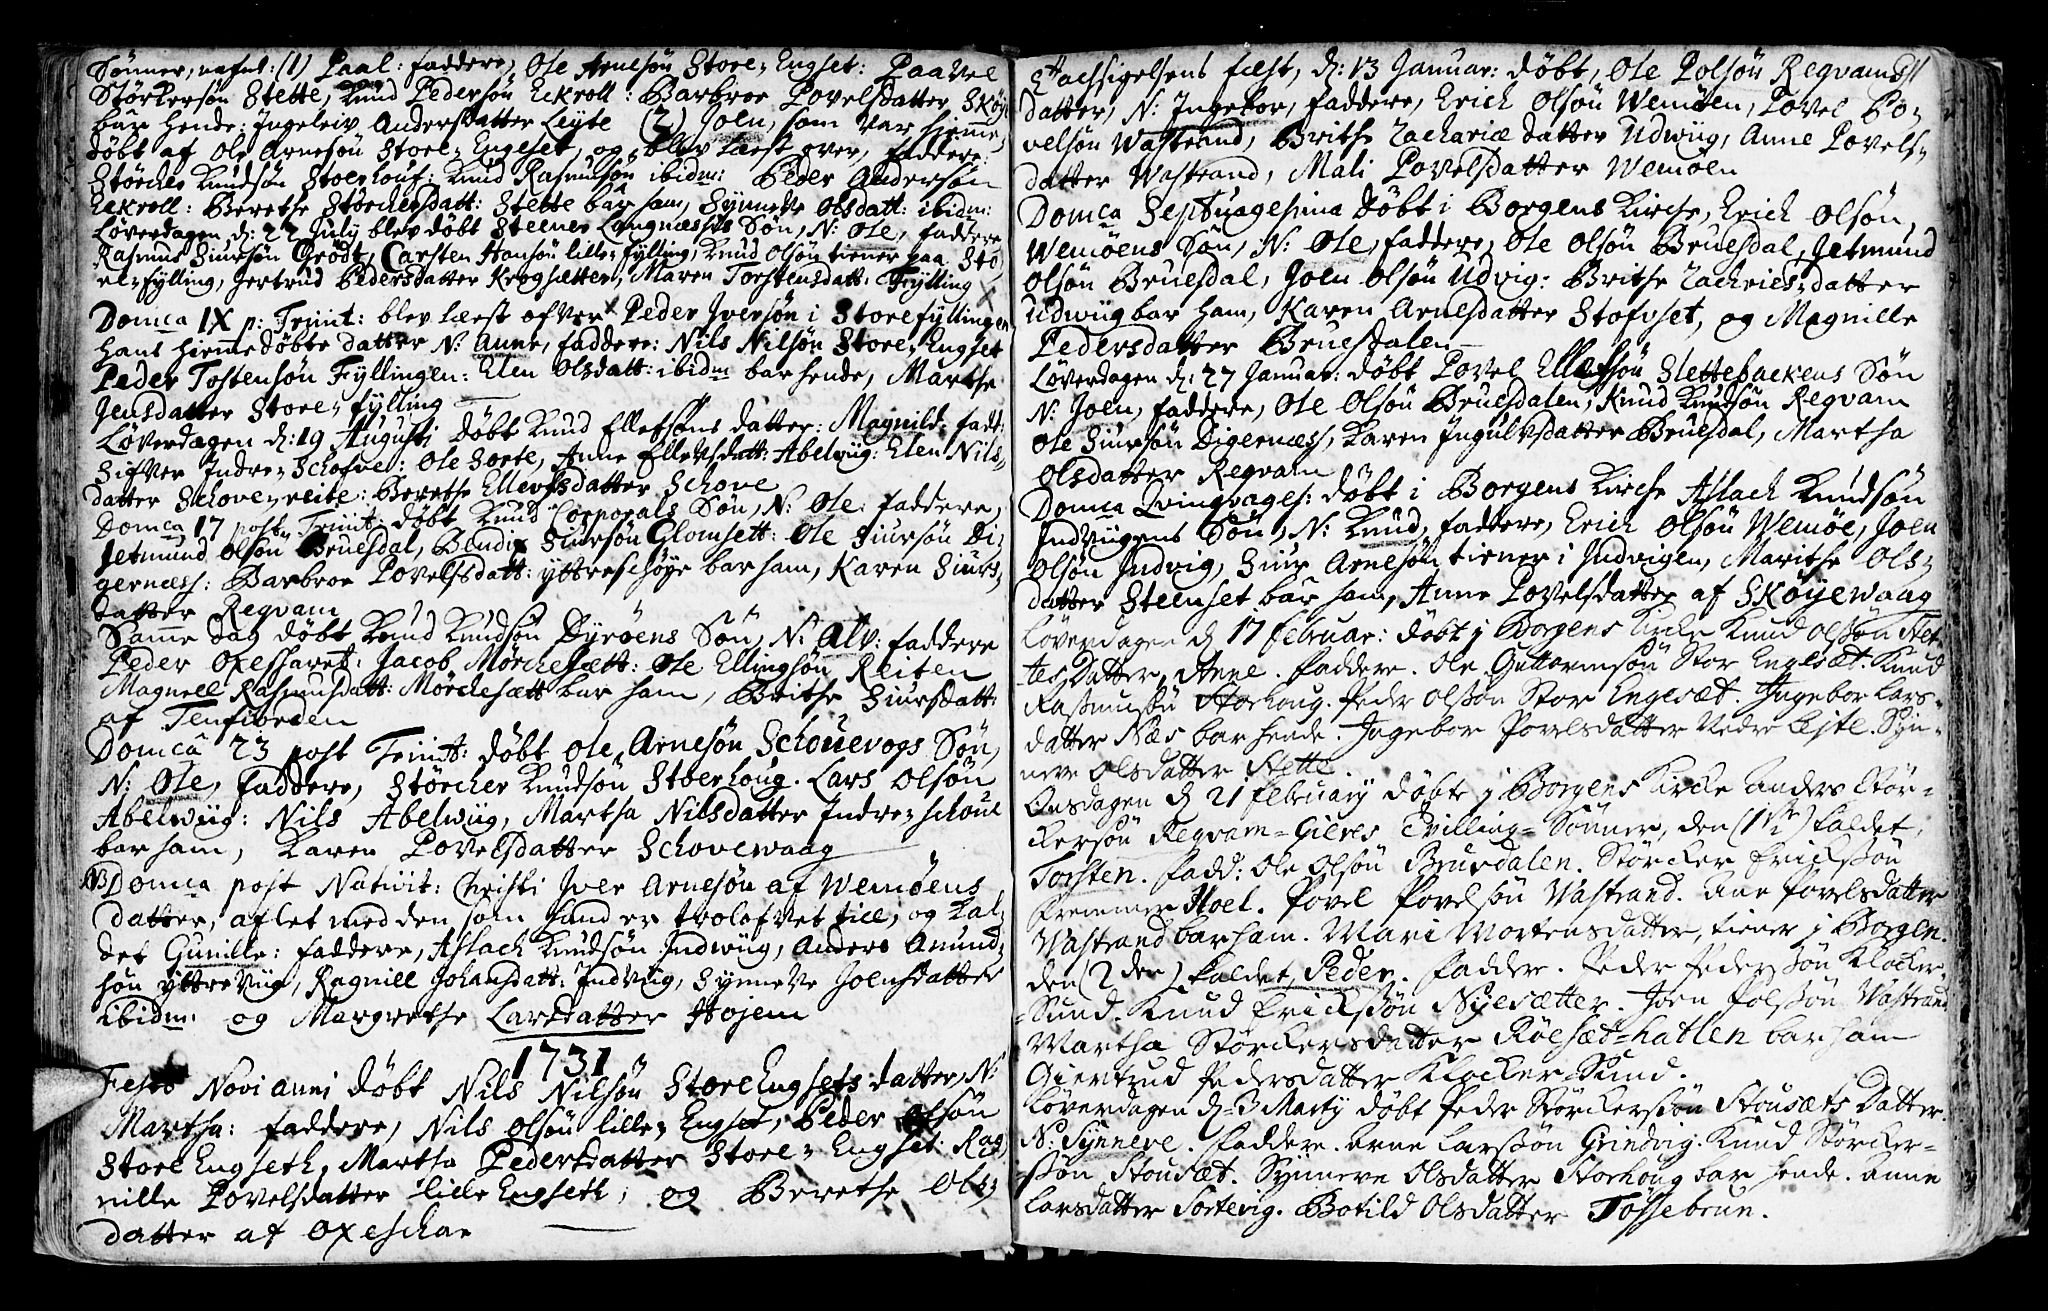 Sønner, nafnl: (1) Paal: faddere, Ole Arnesøn Store-Engset: Paavel
Størkersøn Stette, Knud Pedersøn Eckroll: Barbroe Povelsdatter Skøÿ
bar hende: Ingeleiv Andersdatter Leÿte (2) Joen, som var hiemme
døbt af Ole Arnesøn Store-Engeset, og blev læst over, faddere:
Størcker Knudsøn Stoerhouf: Knud Rasmusøn ibidm: Peder Andersøn
Eckroll: Berethe Størckersdatt: Stette bar ham, Synneve Olsdatt: ibidm:
Løverdagen d: 22 Julÿ blev døbt Steener Langnæsses Søn, N: Ole, faddere
Rasmus Siursøn Grodt, Carsten Hansøn lille-Fÿlling, Knud Olsøn tiener paa Sto
re-fÿlling, Gertrud Pedersdatter Krogsætter, Maren Torstensdatt: Fÿlling
Domca IX p: Trinit: blev læst ofver Peder Iversøn i Storefÿllingen
hans hiemmedøbte datter N: Anne, faddere: Nils Nilsøn Store-Engset
Peder Tostensøn Fÿllingen: Elen Olsdatt: ibidm bar hende, Marthe
Jensdatter Store-fÿlling
Løverdagen d: 19 Augusti døbt Knud Ellefsøns datter: Magnild: fadd:
Sifver Indre-Schofve: Ole Sorte, Anne Ellevsdatt: Abelwiig: Elen Nils-
datter Schove-reite: Berethe Ellevsdatter Schove
Domca 17 post Trinit: døbt Knud Corporals Søn, N: Ole: faddere,
Jetmund Olsøn Bruesdal, Bendix Siursøn Glomsett: Ole Siursøn Di-
gernæss: Barbroe Povelsdatt: ÿttreschøÿe bar ham, Karen Siurs-
datter Regvam
Samme dag døbt Knud Knudsøn Dÿrøens Søn, N: Alv: faddere
Peder Oxesharet: Jacob Mørchesætt: Ole Ellingsøn Reiten
Magnell Rasmusdatt: Mørchesætt bar ham, Brithe Siursdatt:
af Tenfiorden
Domca 23 post Trinit: døbt Ole Arnesøn Schouevogs Søn,
N: Ole, faddere, Størcher Knudsøn Stoerhoug. Lars Olsøn
Abelwiig: Nils Abelwiig, Martha Nilsdatter Indre-Schoue
bar ham, Karen Povelsdatter Schovewaag
NB Domca post Nativit: Christi Iver Arnesøn af Wemøens
datter, aflet med den som hand er trolofvet till, og kal-
det Gunille: faddere, Aslach Knudsøn Indwiig, Anders Amund-
søn ÿttreviig, Ragnill Johansdatt: Indviig, Synneve Joensdatter
ibidm: og Margrethe Larsdatter Højem
1731
Festo Novi anni døbt Nils Nilsøn Store Engsets datter, N:
Martha: faddere, Nils Olsøn lille-Engset, Peder Olsøn
Store Engseth, Martha Pedersdatter Store-Engset: Rag
nille Povelsdatter lille Engseth, og Berethe Ols-
datter af Oxeschar
Tachsigelsens fæst, d: 13 Januar: døbt, Ole Polsøn Regvams
datter, N: Ingebor, faddere, Erich Olsøn Wemøen, Povel Po-
velsøn Wastrand, Brithe Zachariæ datter Udwiig, Anne Povels-
datter Wastrand, Mali Povelsdatter Wemøen
Domca Septuagesima døbt i Borgens Kirche, Erich Olsøn
Wemøens Søn, N: Ole, faddere, Ole Olsøn Bruesdal, Jetmund
Olsøn Bruesdal, Joen Olsøn Udvig: Brithe Zachries-datter
Udwiig bar ham, Karen Arnesdatter Stofset, og Magnille
Pedersdatter Bruesdalen
Løverdagen d: 27 Januar: døbt Povel Ellefsøn Slettebackens Søn
N: Joen, faddere, Ole Olsøn Bruesdalen, Knud Knudsøn Regvam
Ole Siursøn Digernæss, Karen Ingulvsdatter Bruesdal, Martha
Olsdatter Regvam
Domca Qvinqvages: døbt i Borgens Kirche Aslach Knudsøn
Indviigens Søn, N: Knud, faddere, Erich Olsøn Wemøe, Joen
Olsøn Indvig, Siur Arnesøn tiener i Indvigen, Marithe Ols-
datter Steenset bar ham, Anne Povelsdatter af Skøÿewaag
Løverdagen d 17 februar: døbt i Borgens Kirke Knud Olssøn Stet
tes Datter, Anne. Faddere. Ole Guttormsøn Stor Engesæt. Knud
Rasmussøn Storhoug. Peder Olssøn Stor Engesæt. Ingebor Lars-
datter Næs bar hende. Ingebor Povelsdatter Nedre Lejte. Sÿn-
neve Olsdatter Stette.
Onsdagen d 21 februarÿ døbte i Borgens Kircke Anders Stør-
kersøn Regvam-Gieres Tvilling-Sønner, den (1ste) kaldet,
Torsten. Fadd: Ole Olsøn Brusdalen. Størcker Erickssøn
Fremmer Hoel. Povel Povelsøn Vastrand. Ane Povelsdatter
Wastrand bar ham. Mari Mortensdatter, tiener i Borgen.
den (2den) kaldet, Peder. Faddere. Peder Pederssøn Klocker-
Sund. Knud Erickssøn Nÿesætter. Joen Polssøn Vastrand
Martha Størckersdatter Røesæt-hatlen bar ham
Giertrud Pedersdatter Klocker-Sund.
Løverdagen d 3 Martÿ døbt Peder Størckerssøn Stousæts Datter.
N: Sÿnneve. Faddere. Arne Larssøn Grindvig. Knud Størcker-
ssøn Stousæt. Synneve Olsdatter Storhoug bar hende. Anne
Larsdatter Sortevig. Botild Olsdatter Tøssebrun.